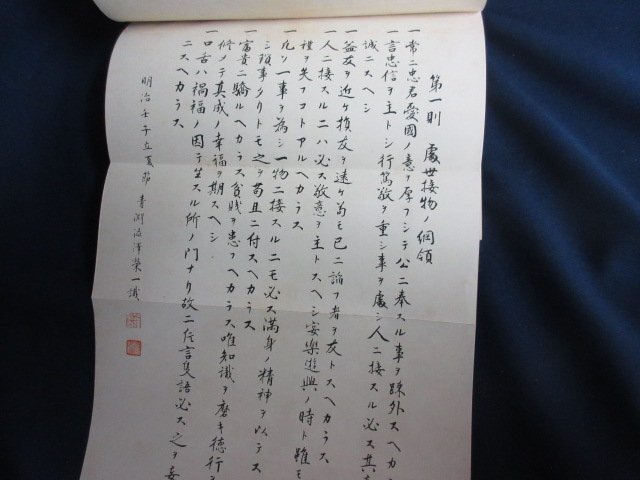 第一則 處世接物ノ綱領
一常ニ忠君愛國ノ意ヲ厚フシテ公ニ奉スル事ヲ疎外スヘカ
一言忠信ヲ主トシ行篤敬ヲ重シ事ヲ處シ人ニ接スル必ス其
誠ニスヘシ
一益友ヲ近ケ損友ヲ遠ケ苟モ己ニ諂フ者ヲ友トスヘカラス
一人ニ接スルニハ必ス敬意ヲ主トスヘシ宴樂遊興ノ時ト雖モ
禮ヲ失フコトアルヘカラス
一凡ソ一事ヲ為シ一物ニ接スルニモ必ス満身ノ精神ヲ以テス
瑣事タリトモ之ヲ苟且ニ付スヘカラス
一富貴ニ驕ルヘカラス貧賎ヲ患フヘカラス唯知識ヲ磨キ徳行ヲ
修メテ真成ノ幸福ヲ期スヘシ
一口舌ハ禍福ノ因テ生スル所ノ門ナリ故ニ片言隻語必ス之ヲ妄
ニスヘカラス
明治壬子立夏節 青淵澁澤榮一識